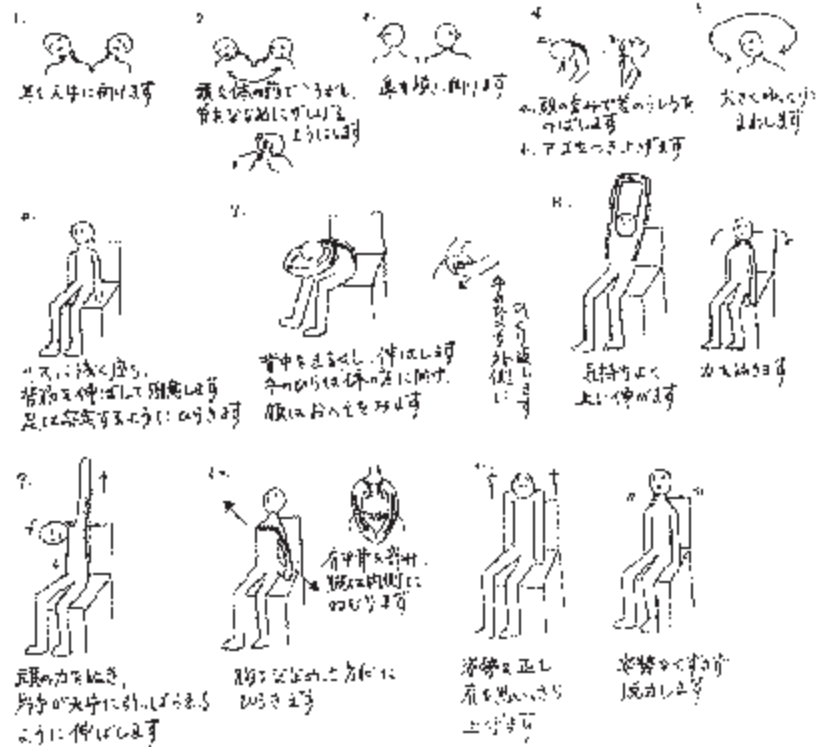 1.
耳を天井に向けます
2.
頭を体の前で
ようにします
3.
鼻を横に向けます
4.
a. 頭の重みで首のうしろを
のばします
b. アゴをつき上げます
5.
大きくゆっくり
まわします
6.
イスに浅く座り、
背筋を伸ばして
足は安定するようにひらきます
7.
背中をまるくし、伸ばします
手のひらは体の方に向け、
顔はおへそをみます
ひっくり返します
手のひらを外側に
8.
気持ちよく
上に伸びます
力を抜きます
9.
頭の力を抜き、
片手が天井に引っぱられる
ように伸ばします
10.
肩甲骨を寄せ、
腕は内側に
ねじります
胸をななめ上方向に
ひらきます
11.
姿勢を正し
肩を思いっきり
上げます
姿勢をくずさず
脱力します